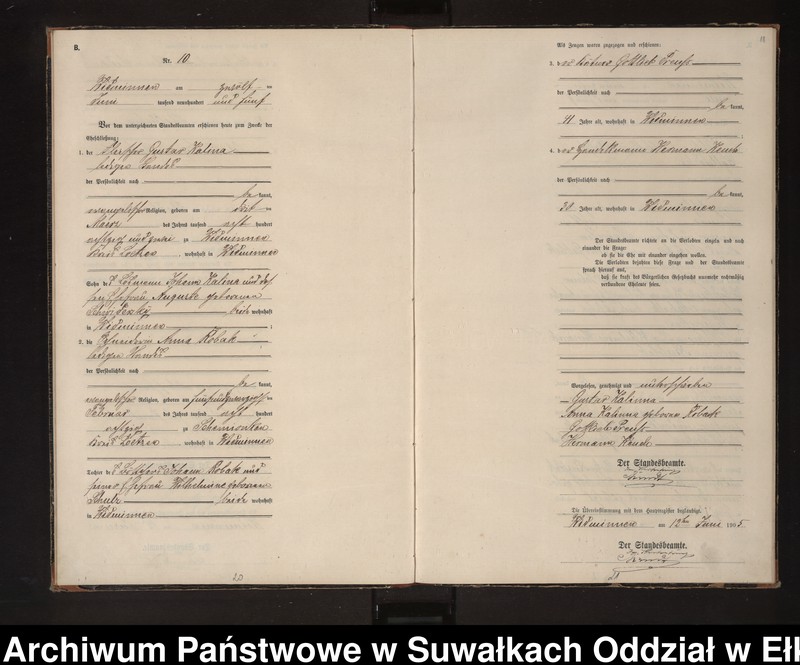 B.
Nr. 10
Widminnen am zwölften
Juni tausend neunhundert und fünf
Vor dem unterzeichneten Standesbeamten erschienen heute zum Zwecke der
Eheschließung:
1. der Gustav Kalena
ledigen Standes
der Persönlichkeit nach
be kannt,
evangelischer Religion, geboren am
März des Jahres tausend acht hundert
achtzig und zwei zu Widminnen
Kreis Loetzen, wohnhaft in Widminnen
Sohn des Losmann Johann Kalena und dessen
Ehefrau Auguste geborenen
beide wohnhaft
in Widminnen ;
2. die Anna Robak
ledigen Standes
der Persönlichkeit nach
be kannt,
evangelischer Religion, geboren am fünfundzwanzigsten
Februar des Jahres tausend acht hundert
achtzig zu Schimonken
Kreis Loetzen, wohnhaft in Widminnen
Tochter des Johann Robak und
seiner Ehefrau Wilhelmine geborenen
Schulz beide wohnhaft
in Widminnen
20
Als Zeugen waren zugezogen und erschienen:
3. der Gottlieb Preuß
der Persönlichkeit nach
be kannt,
41 Jahre alt, wohnhaft in Widminnen
4. der Hermann
der Persönlichkeit nach
be kannt,
Jahre alt, wohnhaft in Widminnen
Der Standesbeamte richtete an die Verlobten einzeln und nach
einander die Frage:
ob sie die Ehe mit einander eingehen wollen.
Die Verlobten bejahten diese Frage und der Standesbeamte
sprach hierauf aus,
daß sie kraft des Bürgerlichen Gesetzbuchs nunmehr rechtmäßig
verbundene Eheleute seien.
Vorgelesen, genehmigt und unterschrieben
Gustav Kalenna
Anna Kalenna geborene Robak
Gottlieb Preuß
Hermann
Der Standesbeamte.
Die Übereinstimmung mit dem Hauptregister beglaubigt.
Widminnen am 12ten Juni 1905
Der Standesbeamte.
Archiwum Państwowe w Suwałkach Oddział w Ełk